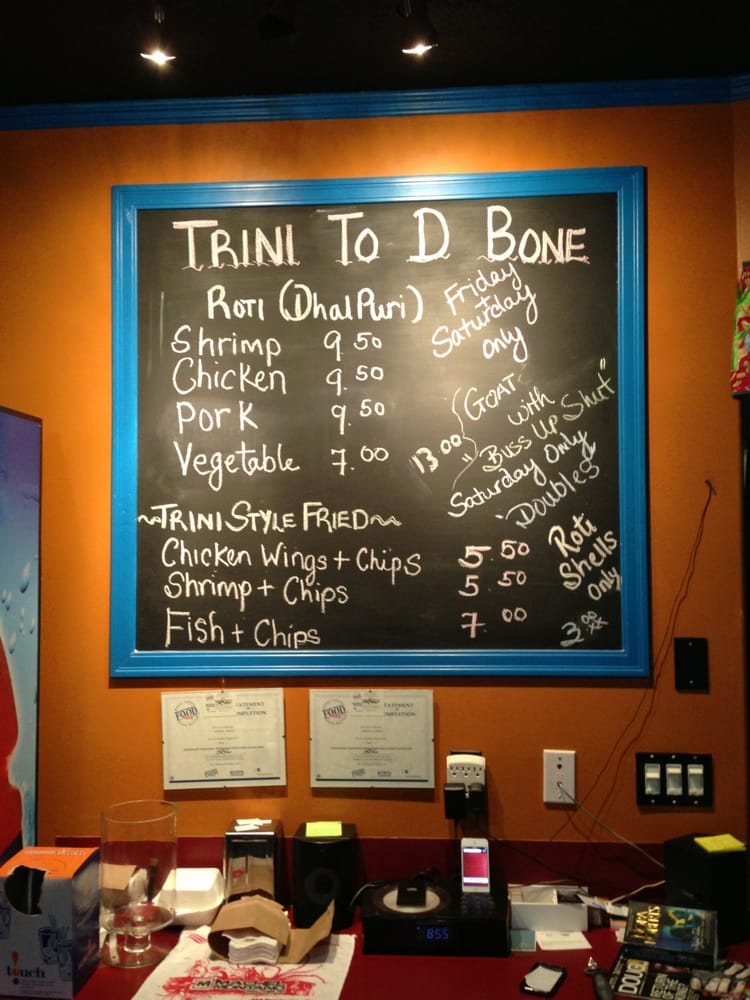 TRINI TO D BONE
ROTI (DhalPuri)
Shrimp 9.50
Chicken 9.50
Pork 9.50
Vegetable 7.00
Friday
+
Saturday
only
GOAT
with
"Buss Up Shut"
13.00
Saturday Only
"Doubles"
~TRINI STYLE FRIED~
Chicken Wings + Chips 5.50
Shrimp + Chips 5.50
Fish + Chips 7.00
Roti
Shells
only
3.00
FOOD
FOOD
855
touch